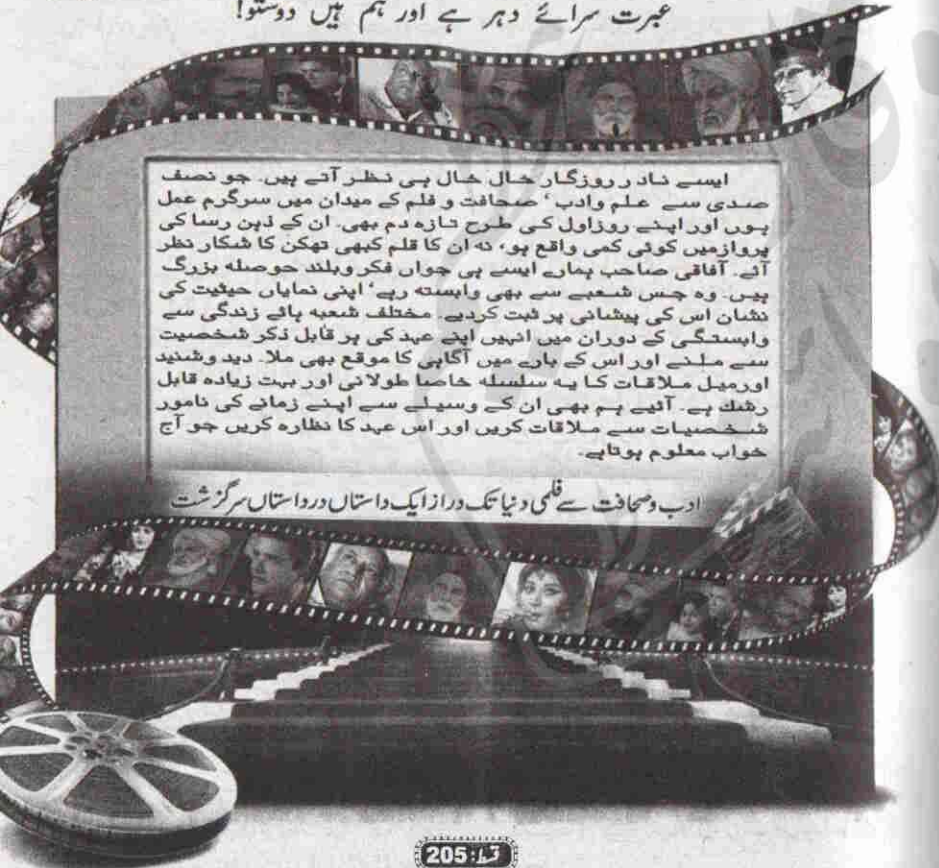 عبرت سرائے دہر ہے اور ہم ہیں دوستو!
ایسے نادر روزگار خال خال ہی نظر آتے ہیں۔ جو نصف
صدی سے علم وادب ' صحافت و قلم کے میدان میں سرگرم عمل
ہوں اور اپنے روزاول کی طرح تازہ دم بھی۔ ان کے ذہن رسا کی
پروازمیں کوئی کمی واقع ہو، نہ ان کا قلم کبھی تھکن کا شکار نظر
آئے۔ آفاقی صاحب ہمارے ایسے ہی جواں فکر وبلند حوصلہ بزرگ
ہیں۔ وہ جس شعبے سے بھی وابستہ رہے' اپنی نمایاں حیثیت کی
نشان اس کی پیشانی پر ثبت کردیے۔ مختلف شعبہ ہائے زندگی سے
وابستگی کے دوران میں انہیں اپنے عہد کی ہر قابل ذکر شخصیت
سے ملنے اور اس کے بارے میں آگاہی کا موقع بھی ملا۔ دید وشنید
اورمیل ملاقات کا یہ سلسلہ خاصا طولانی اور بہت زیادہ قابل
رشك ہے۔ آئیے ہم بھی ان کے وسیلے سے اپنے زمانے کی نامور
شخصیات سے ملاقات کریں اور اس عہد کا نظارہ کریں جو آج
خواب معلوم ہوتاہے۔
ادب وصحافت سے فلمی دنیا تک دراز ایک داستاں درداستاں سرگزشت
قسط:205